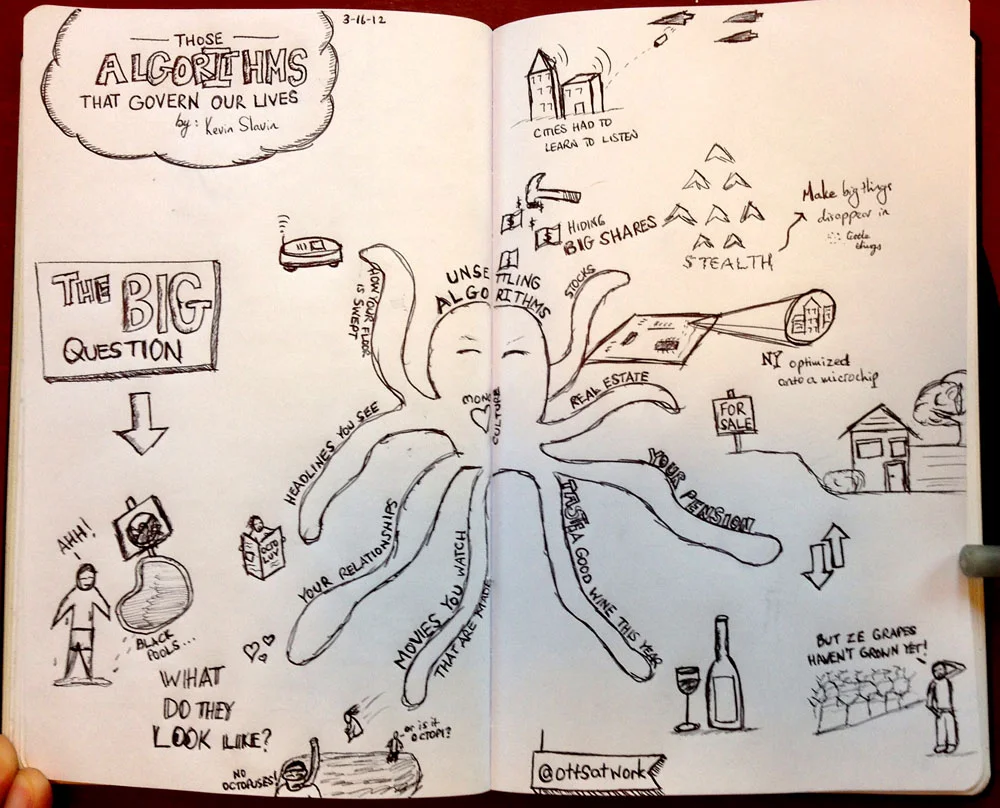 3-16-12
THOSE
ALGORITHMS
THAT GOVERN OUR LIVES
by: Kevin Slavin
CITIES HAD TO
LEARN TO LISTEN
HIDING
BIG SHARES
STEALTH
Make big things
disappear in
little
things
THE BIG
QUESTION
UNSETTLING
ALGORITHMS
HOW YOUR FLOOR
IS SWEPT
STOCKS
NY optimized
onto a microchip
REAL ESTATE
FOR
SALE
MONO
CULTURE
HEADLINES YOU SEE
YOUR RELATIONSHIPS
MOVIES YOU WATCH
THAT ARE MADE
TASTE A GOOD WINE THIS YEAR
YOUR PENSION
AHH!
BLACK
POOLS...
WHAT
DO THEY
LOOK LIKE?
NO
OCTOPUSES!
-or is it
OCTOPI?
BUT ZE GRAPES
HAVEN'T GROWN YET!
@ottsatwork